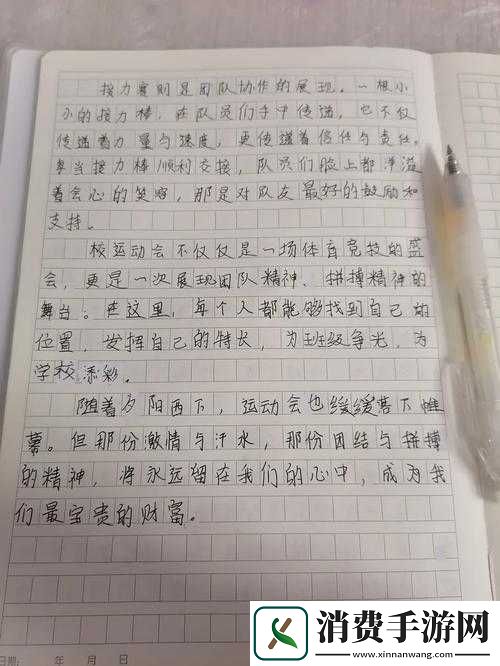 接力赛则是团队协作的展现。一根小
小的接力棒，在队员们手中传递，它不仅
传递着力量与速度，更传递着信任与责任。
每当接力棒顺利交接，队员们脸上都洋溢
着会心的笑容，那是对队友最好的鼓励和
支持。
校运动会不仅仅是一场体育竞技的盛
会，更是一次展现团队精神、拼搏精神的
舞台。在这里，每个人都能够找到自己的
位置，发挥自己的特长，为班级争光，为
学校添彩。
随着夕阳西下，运动会也缓缓落下帷
幕。但那份激情与汗水，那份团结与拼搏
的精神，将永远留在我们的心中，成为我
们最宝贵的财富。
日期： 年 月 日
消费手游网
www.xinnanwang.com